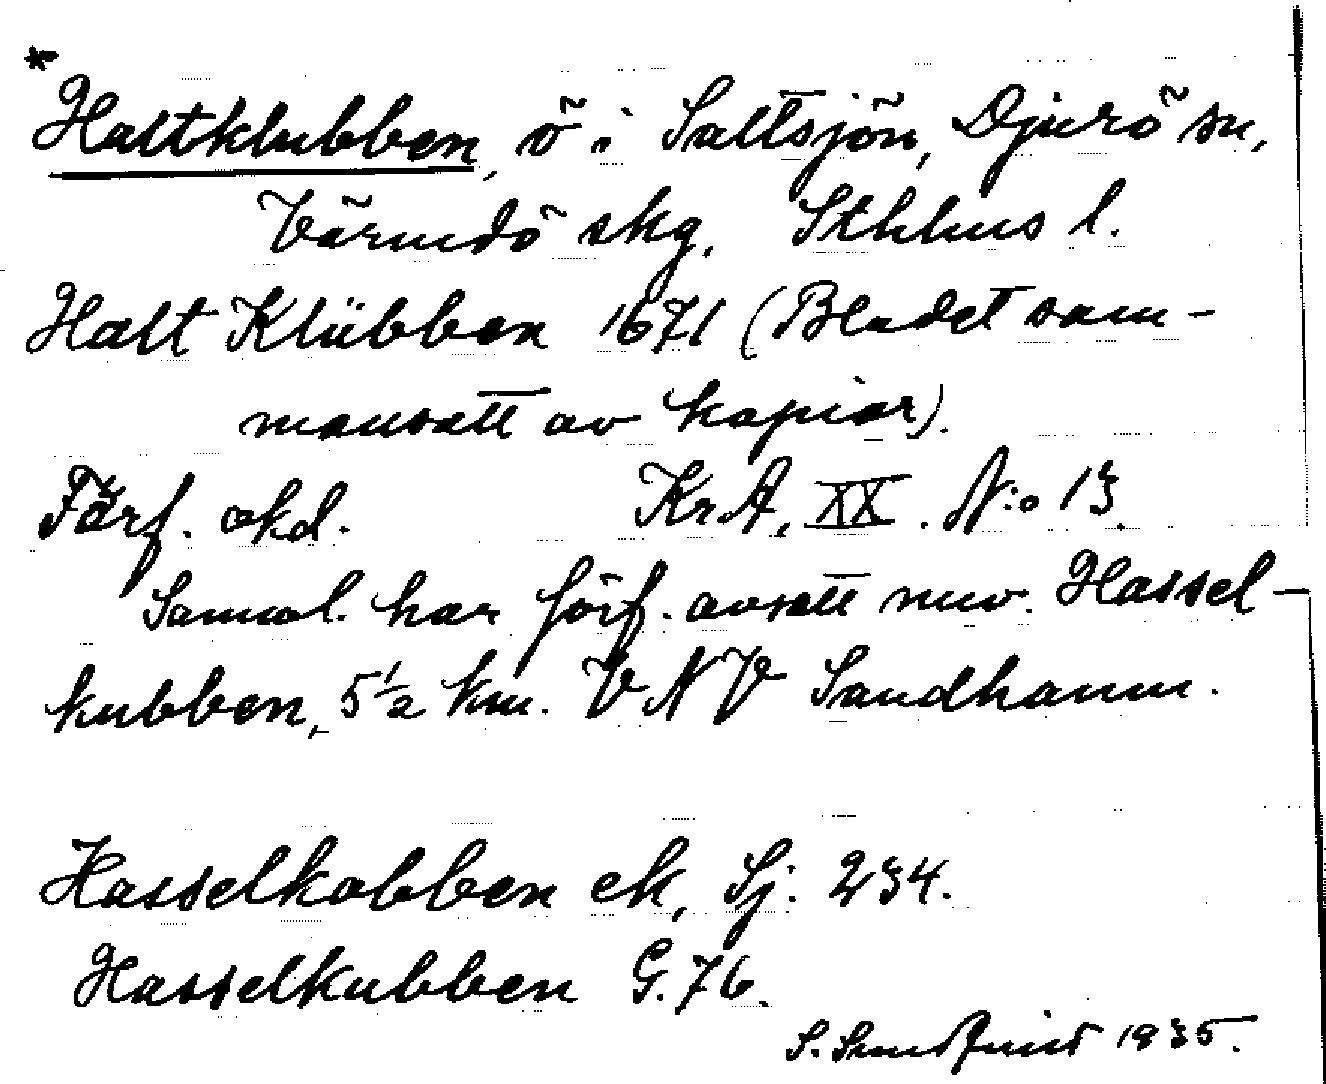 * Haltklubben, ö i Saltsjön, Djurö sn,
Värmdö skg. Sthlms l.
Halt Klübben 1671 (Bladet sam-
mansatt av kopior).
Förf. okd. KrA, XX. N:o 13.
Samml. har förf. avsett nuv. Hassel-
kubben, 5 1/2 km. VNV Sandhamn.
Hasselkobben ek, Sj. 234.
Hasselkubben G. 76.
S. Sundquist 1935.